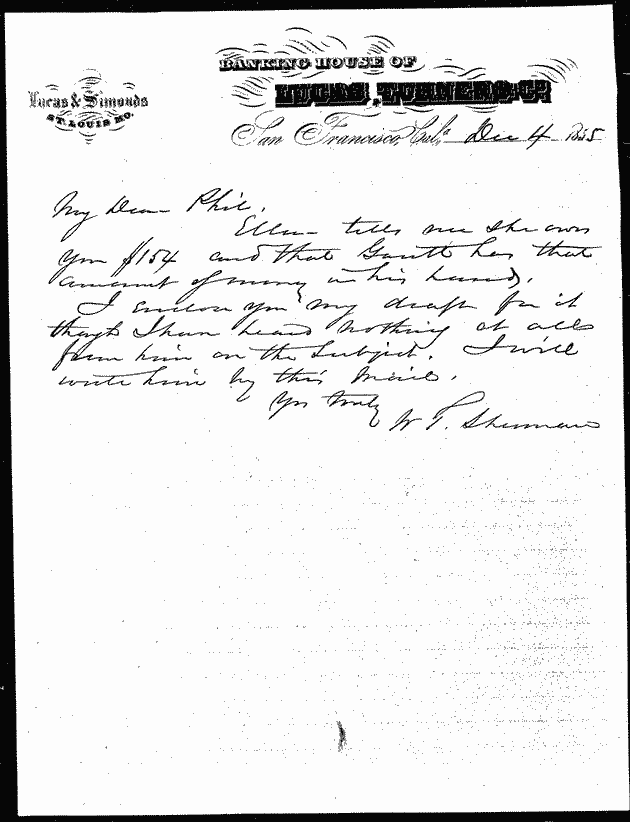 BANKING HOUSE OF
Lucas & Simonds
LUCAS, TURNER & Co.
ST. LOUIS MO.
San Francisco, Cal, Dec 4 1855
My Dear Phil.
Ellen tells me she owes
you $154 and that Gantt has that
amount of money in his hands.
I enclose you my draft for it
though I have heard nothing at all
from him on the subject. I will
write him by this mail.
Yrs truly
W T. Sherman